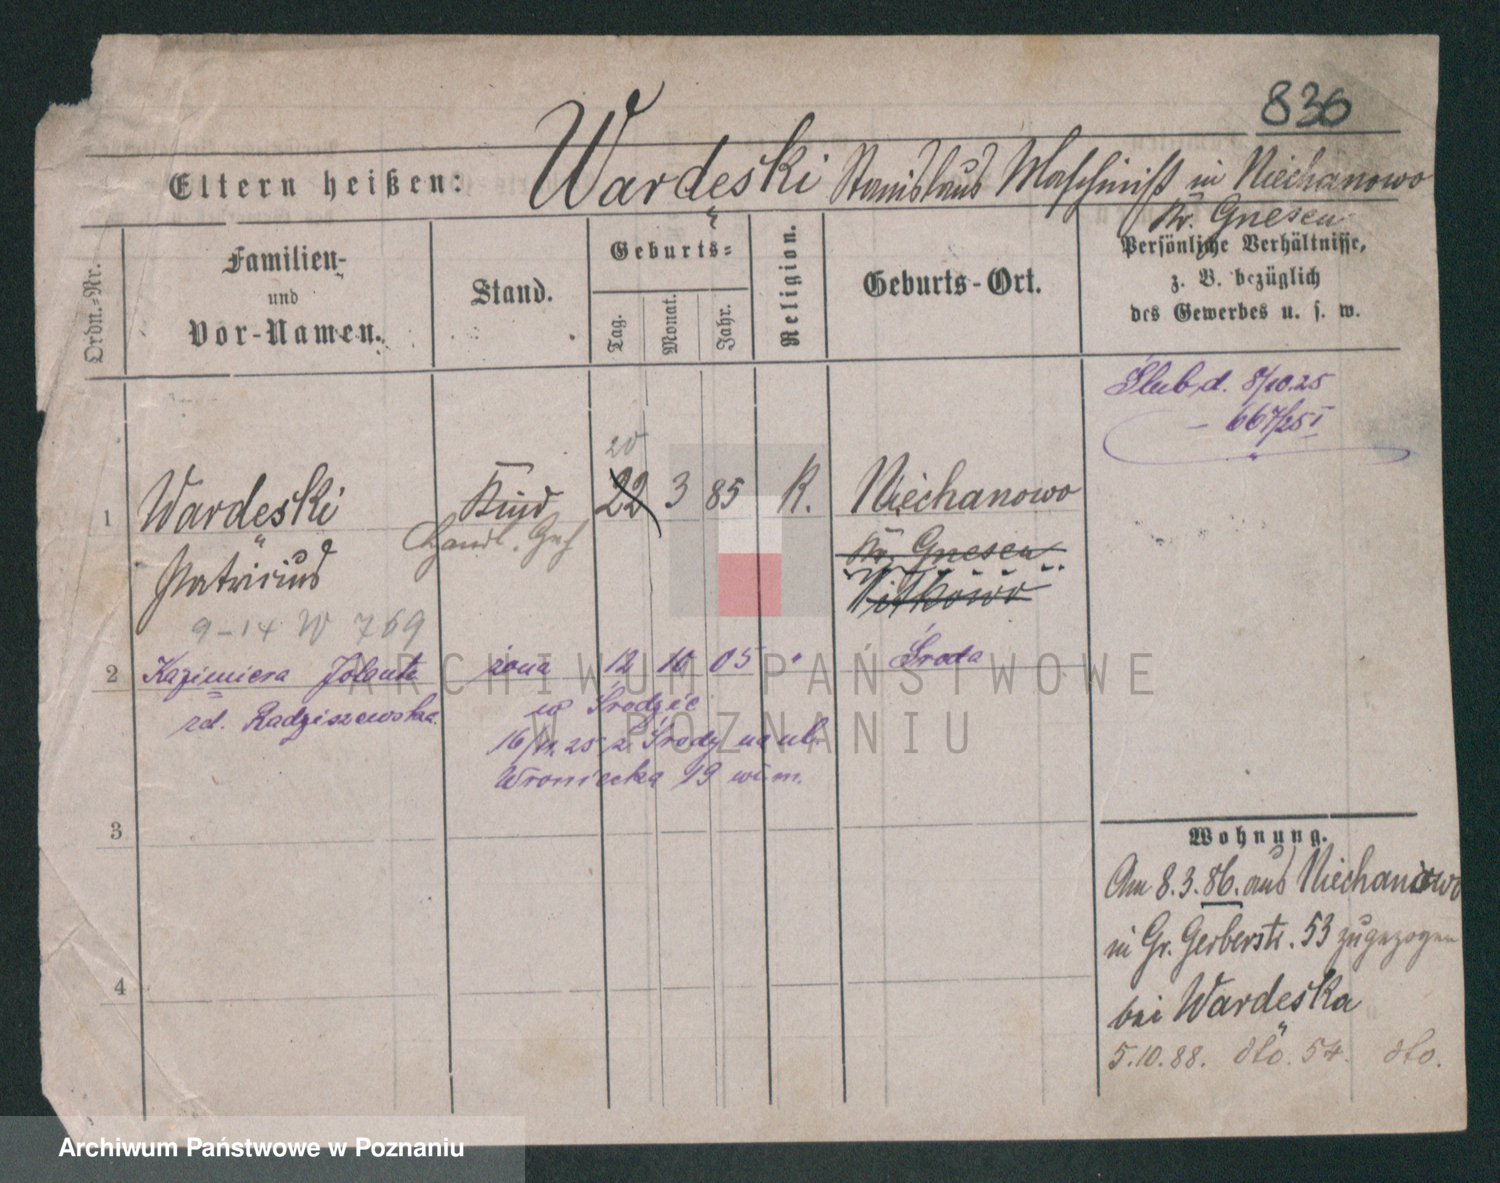 836
Eltern heißen: Wardeski Stanislaus Maschinist in Niechanowo
Kr. Gnesen
Ordn.-Nr.
Familien-
und
Vor-Namen.
Stand.
Geburts-
Tag.
Monat.
Jahr.
Religion.
Geburts-Ort.
Persönliche Verhältnisse,
z. B. bezüglich
des Gewerbes u. s. w.
Ślub d. 8/10.25
- 667/25 I
20
1 Wardeski Kind 22 3 85 K. Niechanowo
Handl. Geh
Kr. Gnesen
Patricius
Witkowo
9-14 W 769
2 Kazimiera Jolanta żona 12 10 05 " Środa
zd. Radziszewska
w Środzie
16/11.25 z Środy na ul.
Wroniecka 19 wim.
3
4
Wohnung.
Am 8.3.86. aus Niechanowo
in Gr. Gerberstr. 53 zugezogen
bei Wardeska
5.10.88. dto. 54. dto.
ARCHIWUM PAŃSTWOWE
W POZNANIU
Archiwum Państwowe w Poznaniu